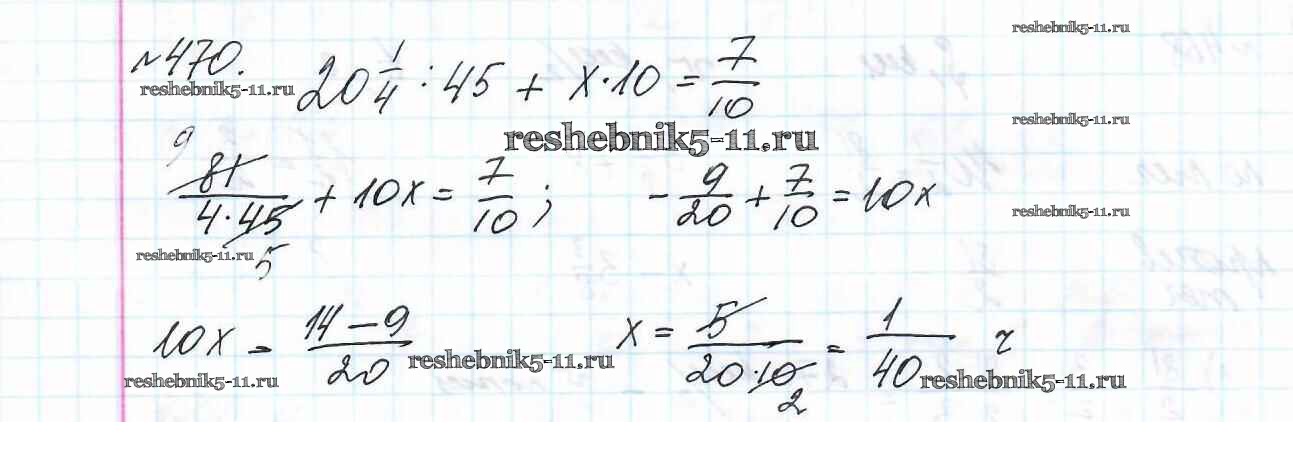 reshebnik5-11.ru
№470. 20 1/4 : 45 + x · 10 = 7/10
reshebnik5-11.ru
reshebnik5-11.ru
reshebnik5-11.ru
9
81/(4 · 45) + 10x = 7/10 ; - 9/20 + 7/10 = 10x
reshebnik5-11.ru
reshebnik5-11.ru
5
10x = (14 - 9)/20 x = 5/(20 · 10) = 1/40 ч
2
reshebnik5-11.ru
reshebnik5-11.ru
reshebnik5-11.ru